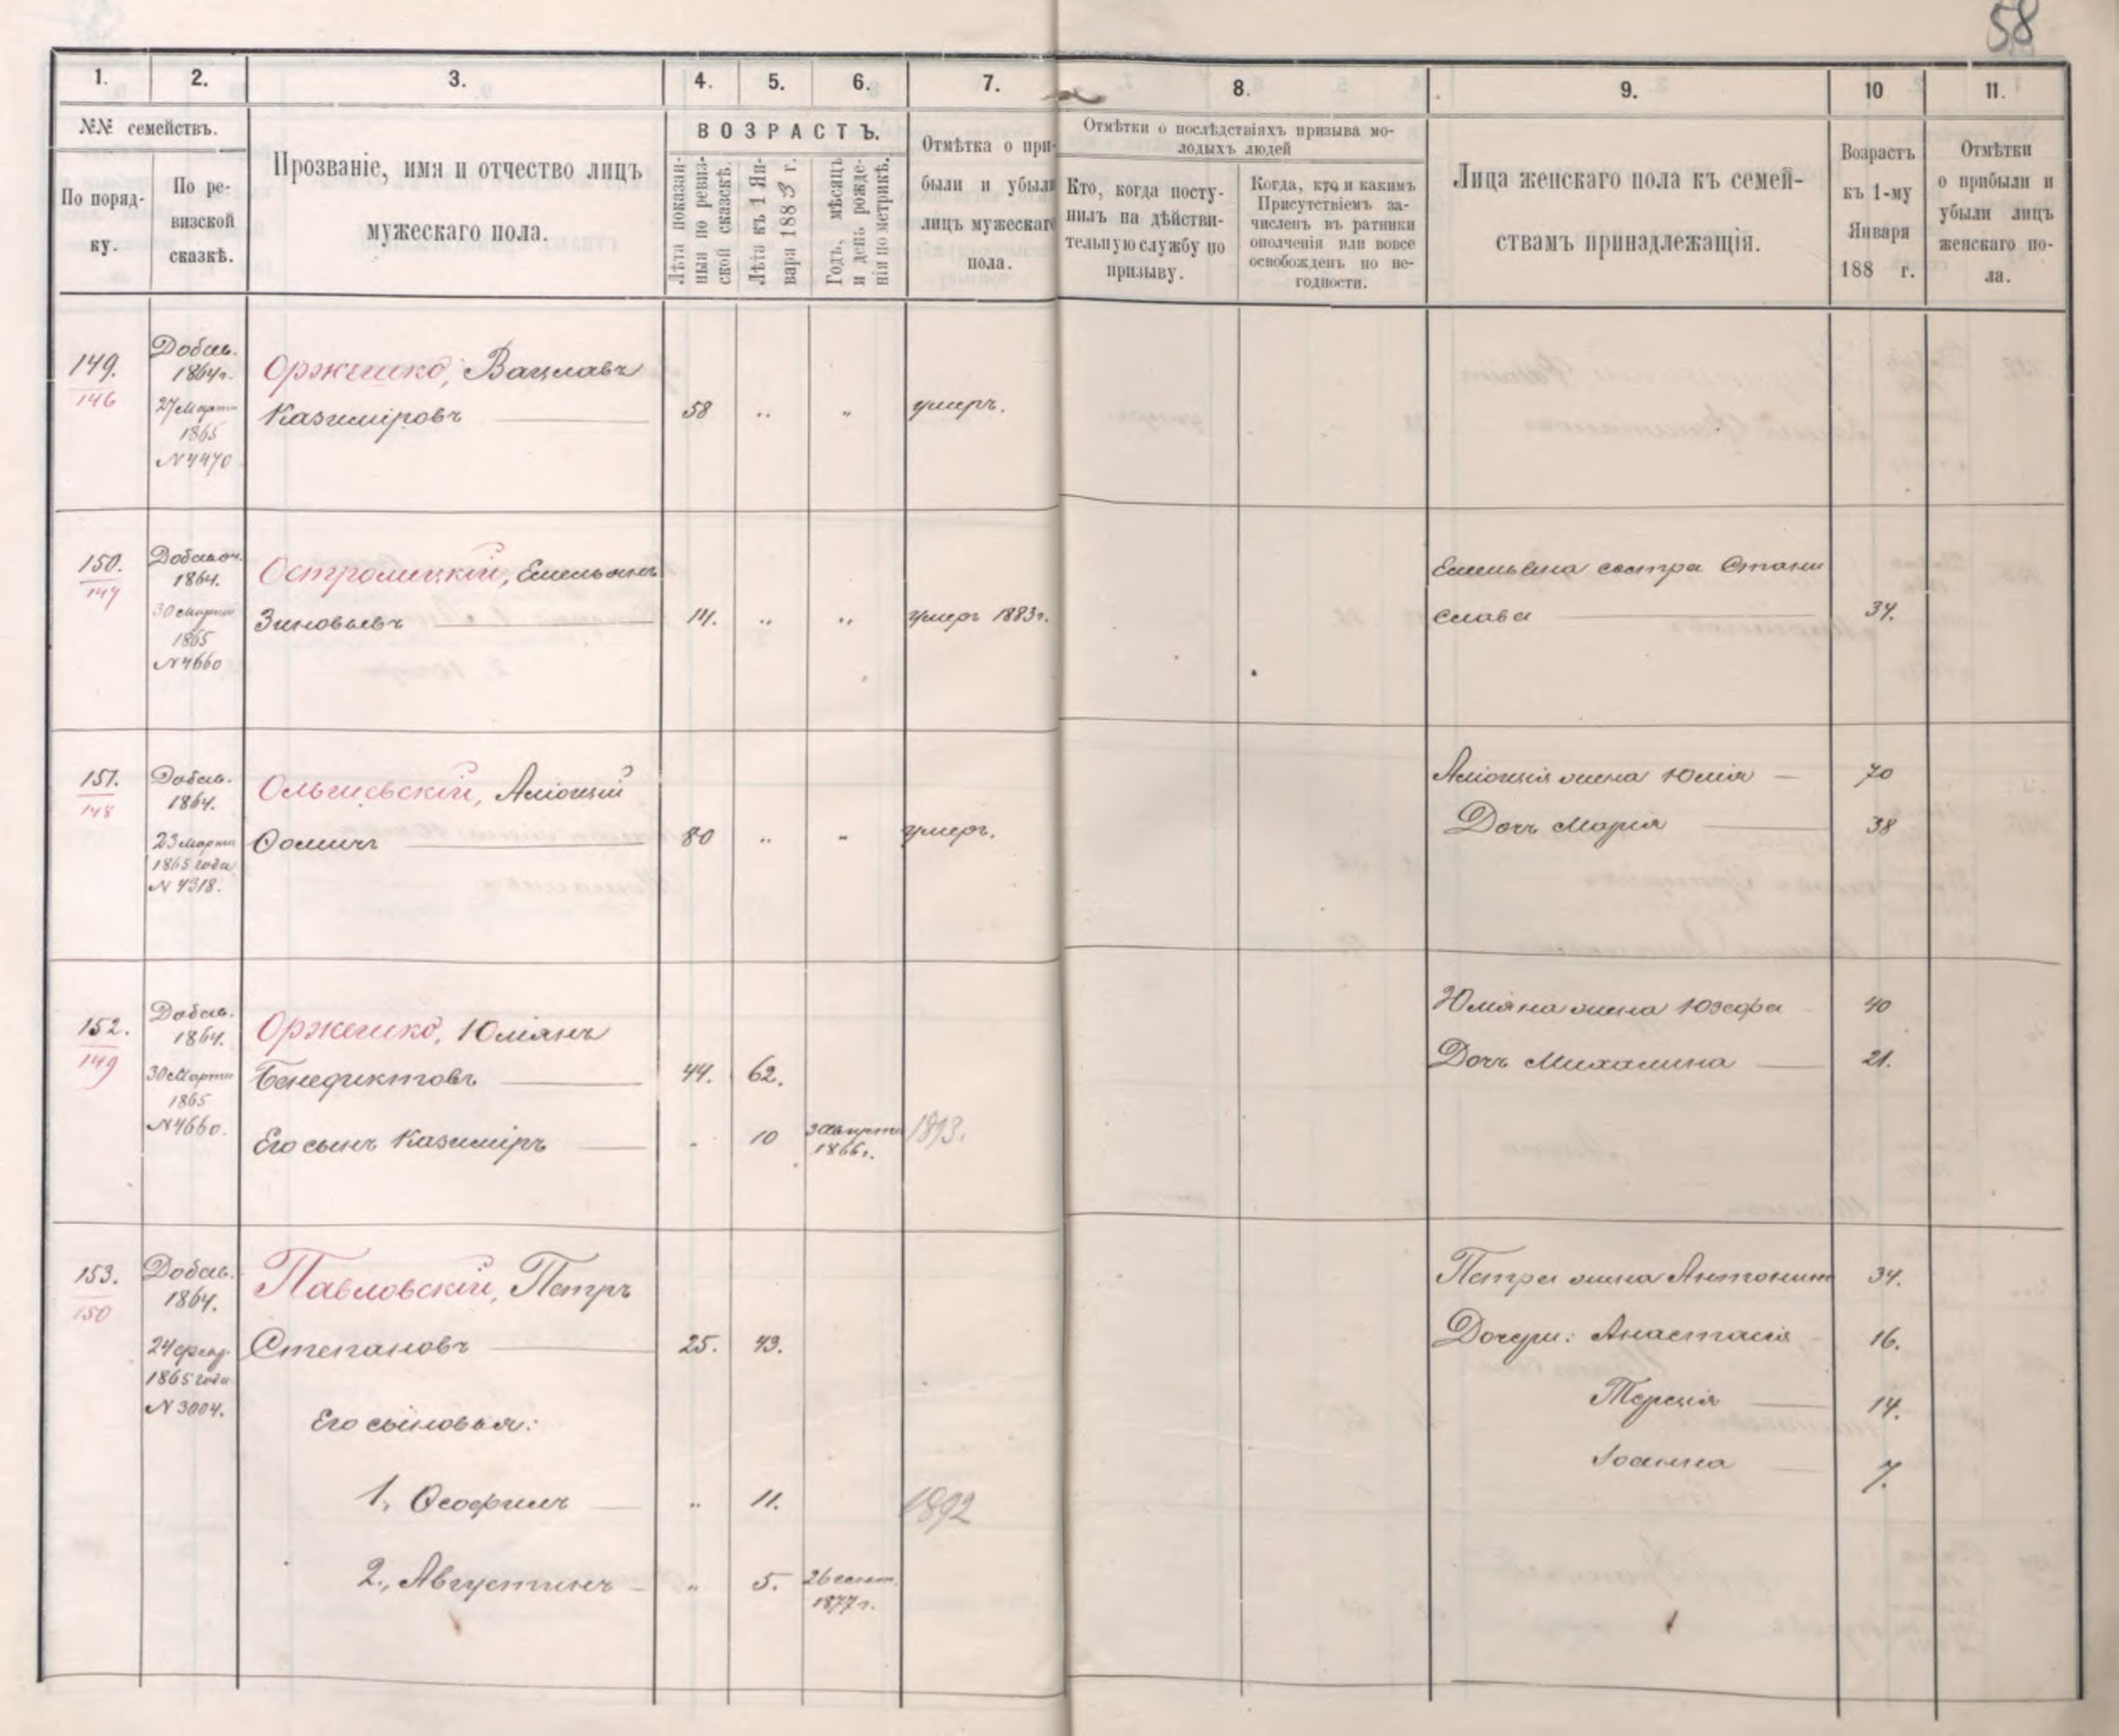 58
1. 2. 3. 4. 5. 6. 7. 8. 9. 10 11.
№№ семействъ.
По поряд-
ку.
По ре-
визской
сказкѣ.
Прозваніе, имя и отчество лицъ
мужескаго пола.
ВОЗРАСТЪ.
Лѣта показан-
ныя по ревиз-
ской сказкѣ.
Лѣта къ 1 Ян-
варя 1883 г.
Годъ, мѣсяцъ
и день рожде-
нія по метрикѣ.
Отмѣтка о при-
были и убыли
лицъ мужескаго
пола.
Отмѣтки о послѣдствіяхъ призыва мо-
лодыхъ людей
Кто, когда посту-
пилъ на дѣйстви-
тельную службу по
призыву.
Когда, кто и какимъ
Присутствіемъ за-
численъ въ ратники
ополченія или вовсе
освобожденъ по не-
годности.
Лица женскаго пола къ семей-
ствамъ принадлежащія.
Возрастъ
къ 1-му
Января
188 г.
Отмѣтки
о прибыли и
убыли лицъ
женскаго по-
ла.
149.
146
Добав.
1864г.
27 Марта
1865
N 4470
Оржешко, Вацлавъ
Казиміровъ 58 .. " умеръ.
150.
147
Добавоч.
1864.
30 Марта
1865
N 4660
Емельянъ
Зиновьевъ 14. .. .. умеръ 1883г.
Емельяна сестра Стани
слава 34.
151.
148
Добав.
1864.
23 Марта
1865 года
N 4318.
Ольшевскій, Алоизій
80 .. " умеръ.
Алоизія жена Юлія 70
Дочь Марія 38
152.
149
Добав.
1864.
30 Марта
1865
N 4660.
Оржешко, Юліянъ
Бенедиктовъ 44. 62.
Его сынъ Казиміръ " 10 3 Августа 1866г. 1893.
Юліяна жена Юзефа 40
Дочь Михалина 21.
153.
150
Добав.
1864.
24 февр.
1865 года
N 3004.
Павловскій, Петръ
Степановъ 25. 43.
Его сыновья:
1, Ѳеофилъ " 11. 1892
2., Августинъ " 5. 26 сент. 1877г.
Петра жена Антонина 34.
Дочери: Анастасія 16.
Терезія 14.
Іоанна 7.